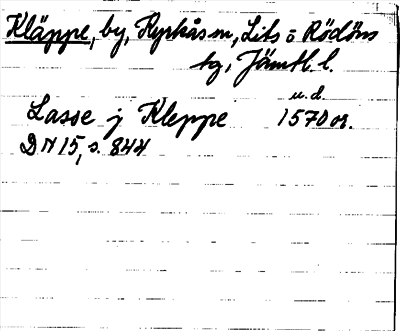 Kläppe, by, Kyrkås sn, Lits o Rödöns
tg, Jämtl. l.
u. d.
Lasse j Kleppe 1570 or.
DN 15, s. 844